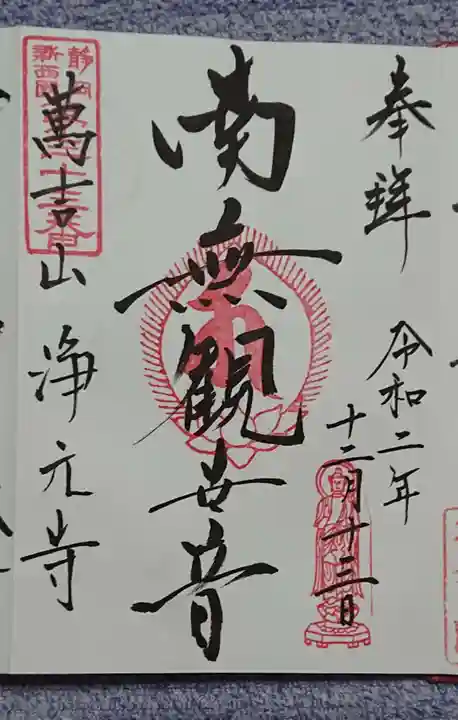 奉拝 令和二年
十二月十三日
南無観世音
静岡
新西国
十三番
萬吉山 浄元寺